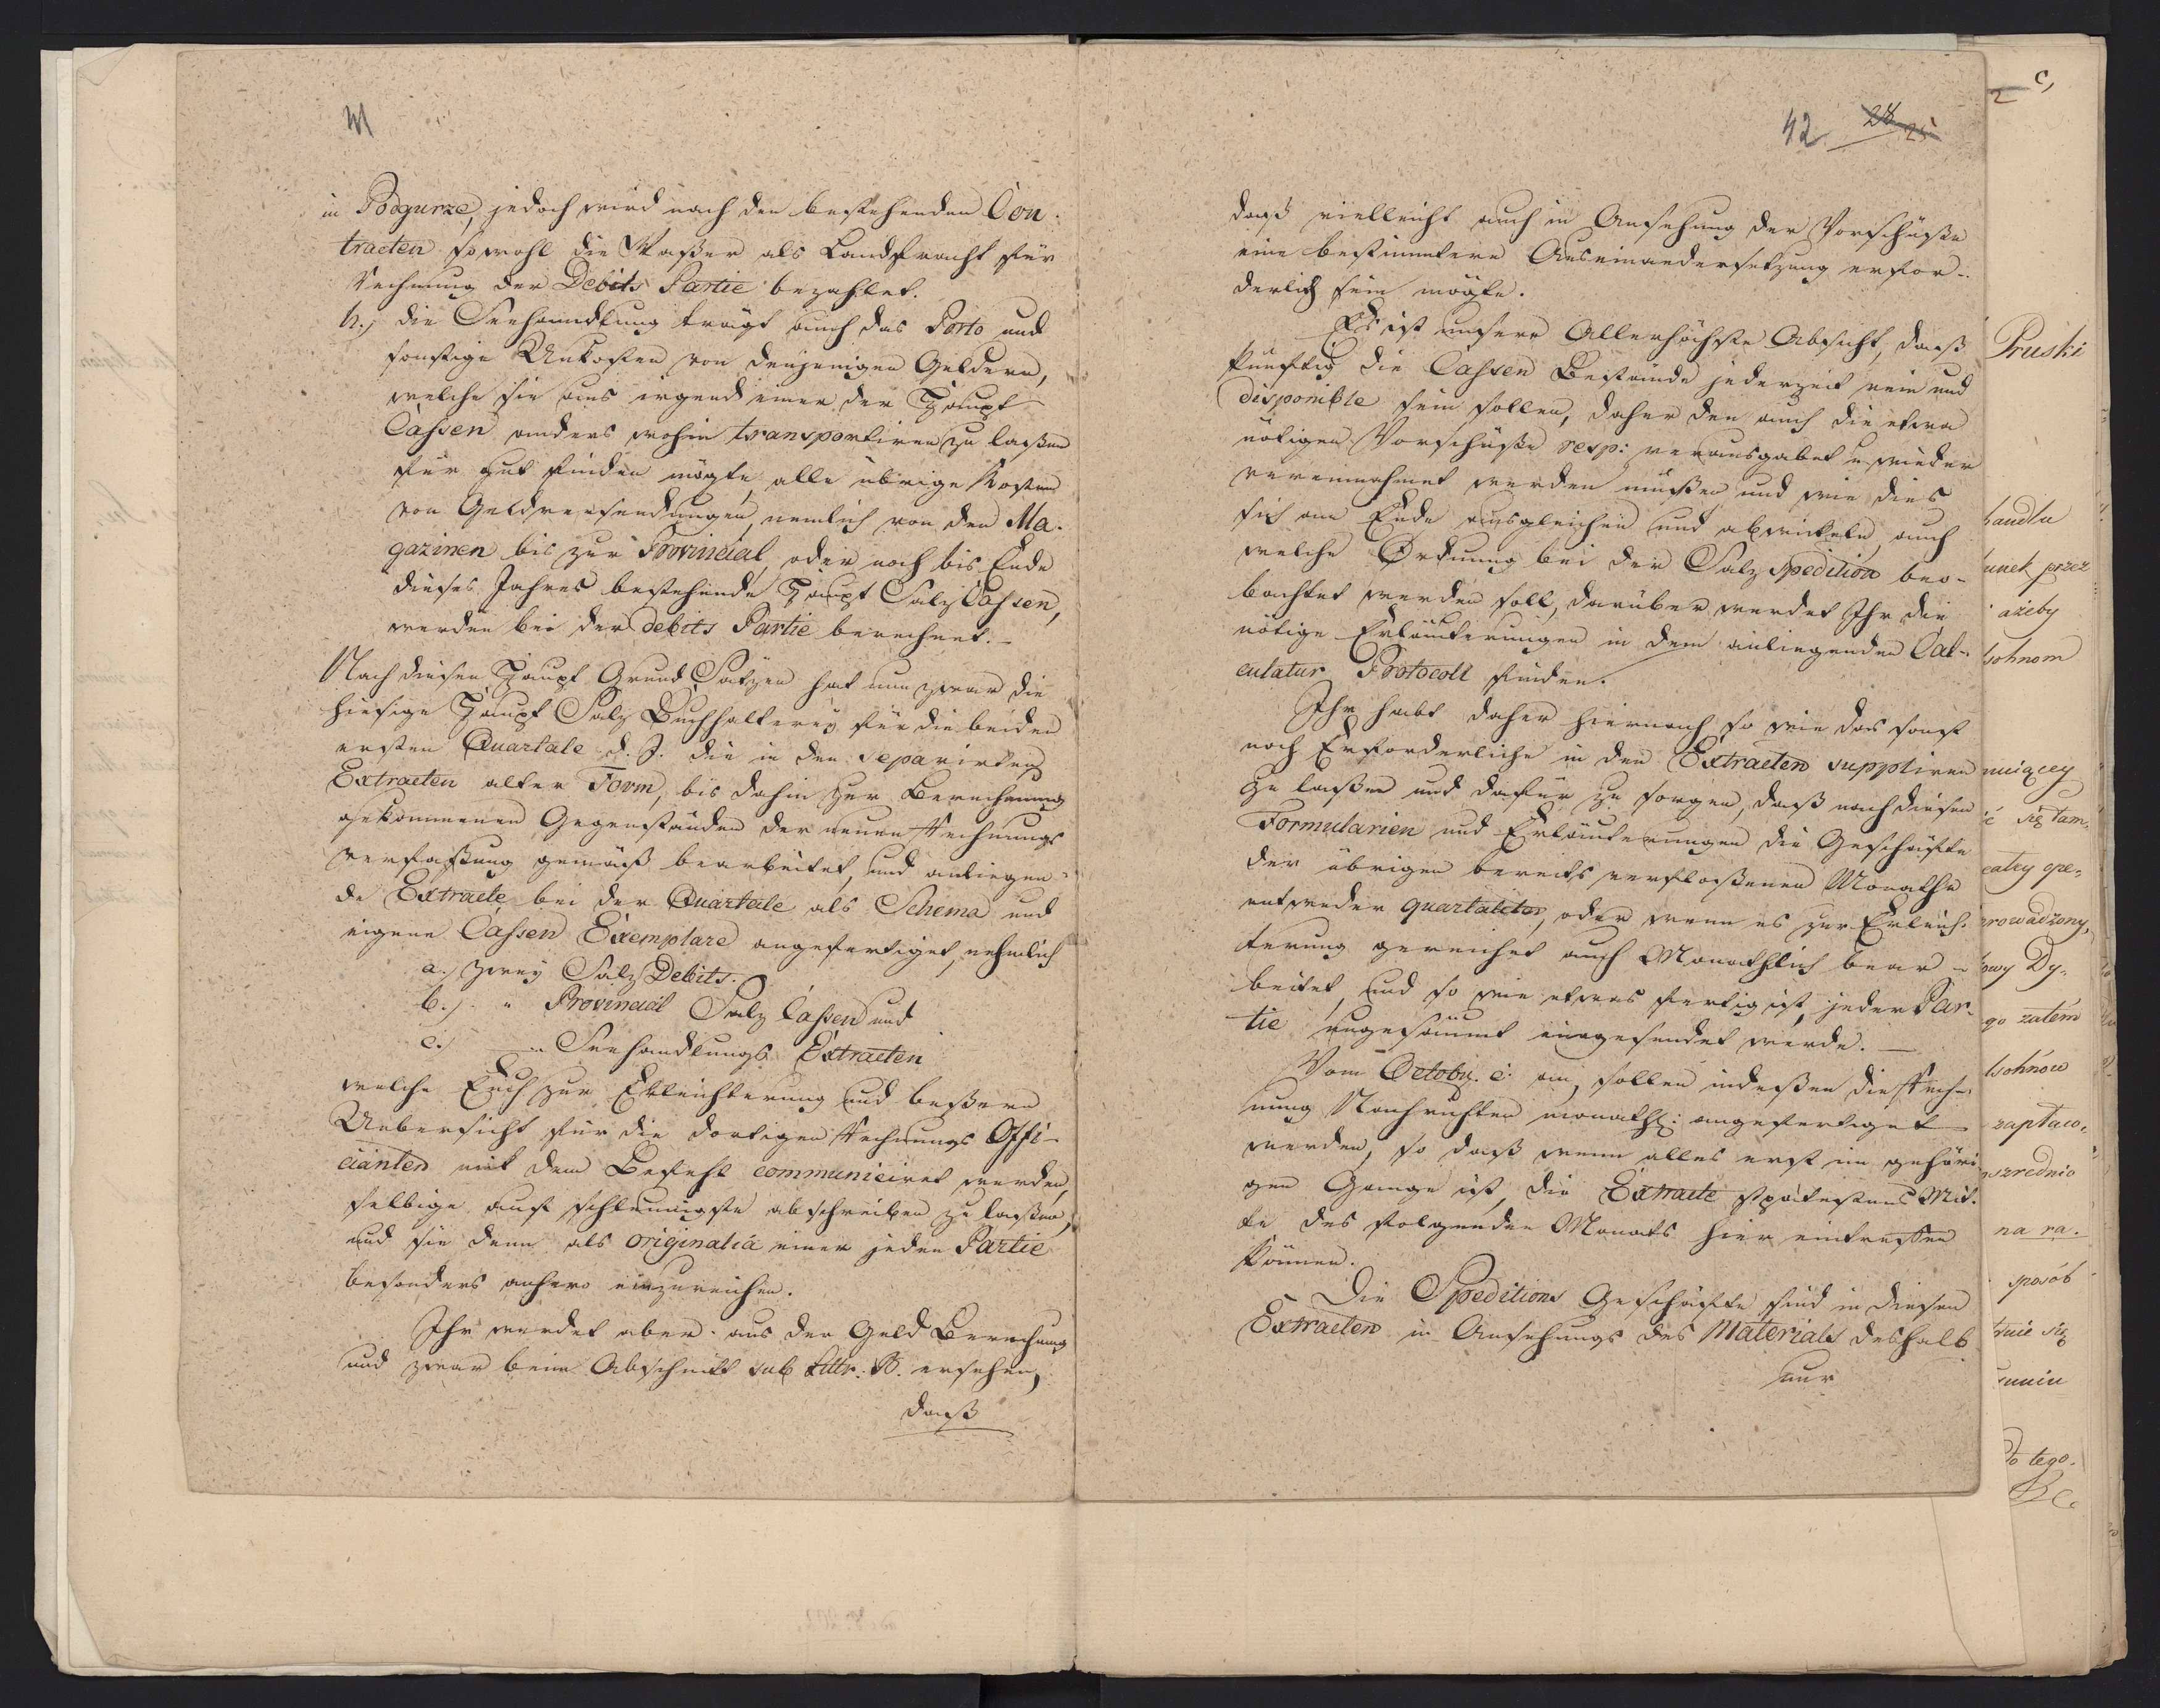 41
in Podgurze, jedoch wird nach den bestehenden Con-
tracten sowohl die Waßer als Landfracht für
Rechnung der Debits Partie bezahlet.
h.) die Seehandlung trägt auch das Porto und
sonstige Unkosten von denjenigen Geldern,
welche sie aus irgend einer der Haupt
Cassen anders wohin transportiren zu laßen
für gut finden mögte alle übrige Kosten
von Geldversendungen, nemlich von den Ma-
gazinen bis zur Provincial, oder noch bis Ende
dieses Jahres bestehende Haupt Salz Cassen,
werden bei der debits Partie berechnet. –
Nach diesen Haupt Grund Sätzen hat nun zwar die
hiesige Haupt Salz Buchhalterey für die beiden
ersten Quartale d. J. die in den separirten
Extracten alter Form, bis dahin zur Berechnung
gekommenen Gegenständen der neuen Rechnungs
Verfaßung gemäß bearbeitet, und anliegen-
de Extracte bei der Quartale als Schema und
eigene Cassen Exemplare angefertiget, nehmlich
a.) zwey Salz Debits.
b.) " Provincial Salz Cassen und
c.) " Seehandlungs Extracten
welche Euch zur Erleichterung und beßern
Uebersicht für die dortigen Rechnungs Offi-
cianten mit dem Befehl communiciret werden,
selbige aufs schleunigste abschreiben zu laßen,
und sie dann als originalia einer jeden Partie
besonders anhero einzureichen.
Ihr werdet aber aus der Geld Berechnung
und zwar beim Abschnitt sub Littr: B. ersehen,
daß
42 28 25
daß vielleicht auch in Ansehung der Vorschüße
eine bestimmtere Auseinandersetzung erfor-
derlich sein mögte.
Es ist unsere Allerhöchste Absicht, daß
künftig die Cassen Bestände jederzeit rein und
disponible sein sollen, daher den auch die etwa
nötigen Vorschüße resp: verausgabet u wieder
vereinnahmet werden müßen und wie dies
sich am Ende ausgleichen und abwickeln, auch
welche Ordnung bei der Salz Spedition beo-
bachtet werden soll, darüber werdet Ihr die
nötige Erläuterungen in dem anliegenden Cal-
culatur Protocoll finden.
Ihr habt daher hiernach so wie das sonst
noch Erforderliche in den Extracten suppliren
zu laßen und dafür zu sorgen, daß nach diesen
Formularien und Erläuterungen die Geschäfte
der übrigen bereits verfloßenen Monathe
entweder quartaliter, oder wenn es zur Erleich-
terung gereichet auch Monathlich bear-
beitet, und so wie etwas fertig ist, jeder Par-
tie ungesäumt eingesendet werde. –
Vom Octobr. c. an, sollen indeßen die Rech-
nung Nachrichten monathl: angefertiget
werden, so daß wenn alles erst im gehöri-
gen Gange ist, die Extracte spätestens Mit-
te des folgenden Monats hier eintreffen
können.
Die Speditions Geschäfte sind in diesen
Extracten in Ansehungs des Materials deshalb
nur
2 c,
Pruski
handlu
unek przez
ażeby
lsohnom
muiącey
ć się tam,
catey ope,
prowadzony,
owy Dy,
go zatém
lsohnów
zapłaco,
oszrednio
na ra.
sposób
tuie się
do tego.